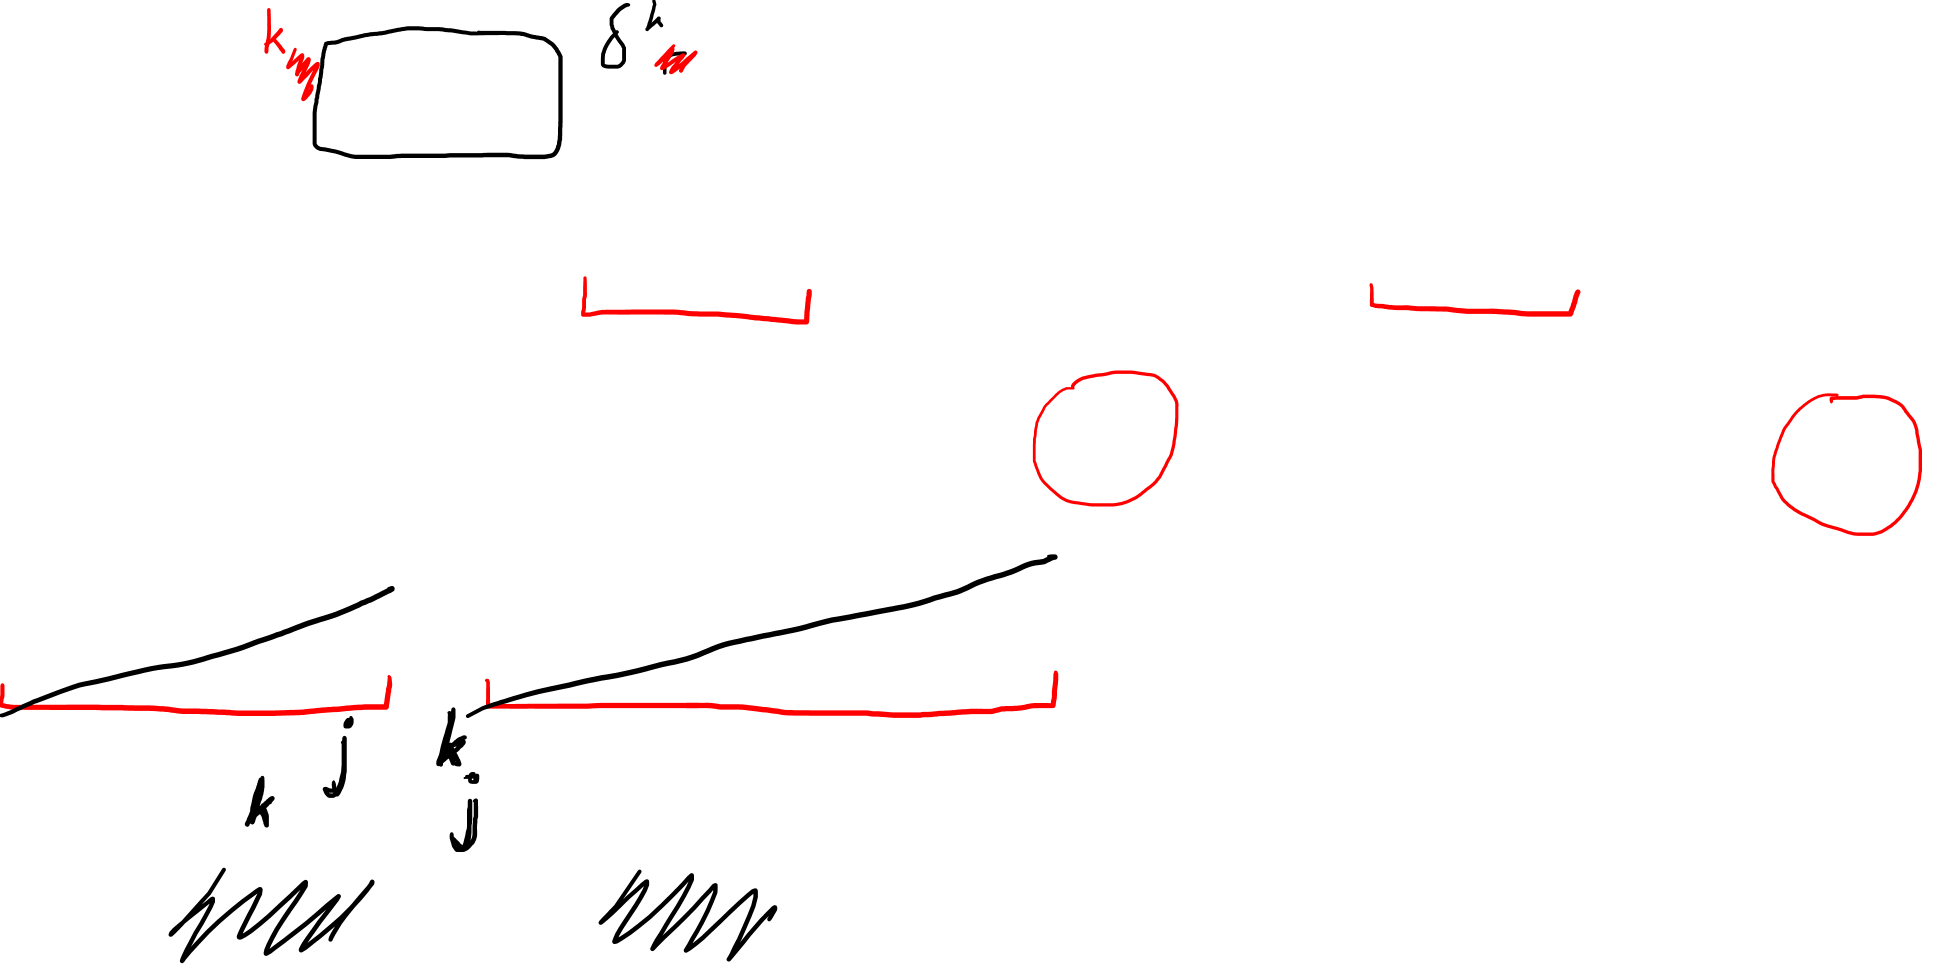 k δ k
j k
k j